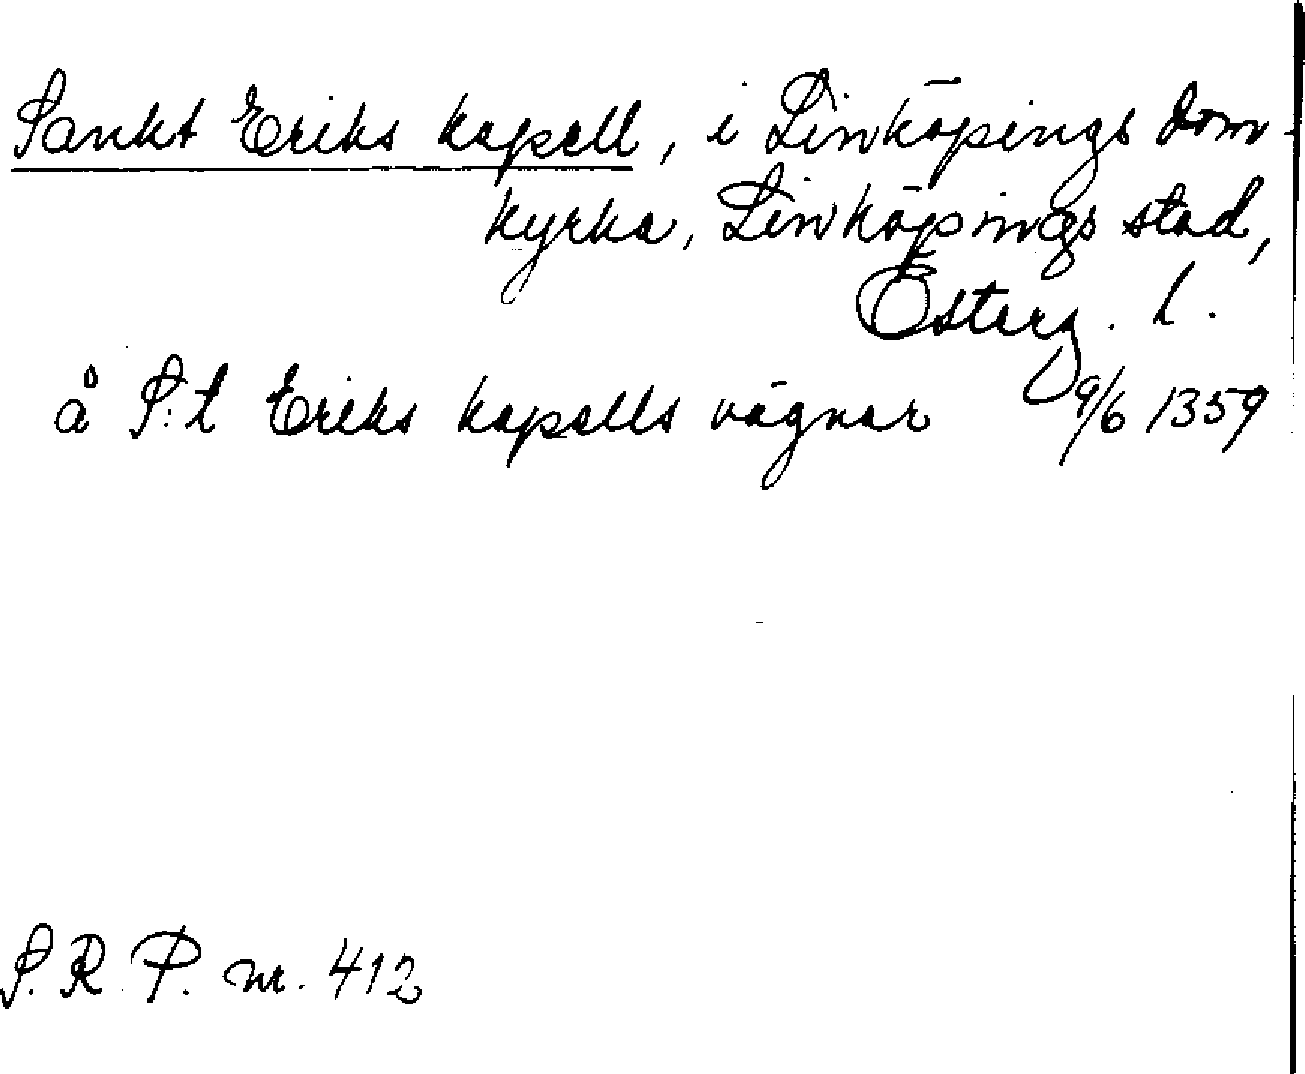 Sankt Eriks kapell, i Linköpings dom-
kyrka, Linköpings stad,
Österg. l.
å S:t Eriks kapells vägnar 9/6 1359
S.R.P. nr. 412